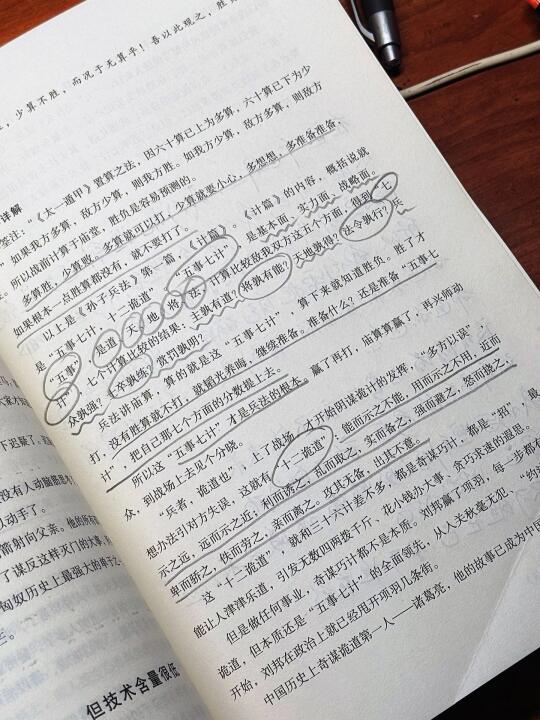 少算不胜，而况于无算乎！吾以此观之，胜
详解
签注：“《太一遁甲》置算之法，因六十算已上为多算，六十算已下为少
”如果我方多算，敌方少算，则我方胜。如我方少算，敌方多算，则敌方
所以战前计算于庙堂，胜负是容易预测的。
多算胜，少算败。多算就可以打，少算就要小心，多想想，多准备准备，
如果根本一点胜算都没有，就不要打了。
以上是《孙子兵法》第一篇，《计篇》。《计篇》的内容，概括说就
是“五事七计，十二诡道”。“五事七计”，是基本面、实力面、战略面。
“五事”，是道、天、地、将、法，计算比较敌我双方这五个方面，得到“七
计”，七个计算比较的结果：主孰有道？将孰有能？天地孰得？法令孰行？兵
众孰强？士卒孰练？赏罚孰明？
兵法讲庙算，算的就是这“五事七计”，算下来就知道胜负。胜了才
打，没有胜算就不打，就韬光养晦，继续准备。准备什么？还是准备“五事七
计”，把自己那七个方面的分数提上去。
所以这“五事七计”才是兵法的根本。赢了再打，庙算算赢了，再兴师动
众，到战场上去见个分晓。
“兵者，诡道也”，上了战场，才开始阴谋诡计的发挥，“多方以误”，
想办法引对方失误，这就有“十二诡道”：能而示之不能，用而示之不用，近而
示之远，远而示之近；利而诱之，乱而取之，实而备之，强而避之，怒而挠之，
卑而骄之，佚而劳之，亲而离之。攻其无备，出其不意。
这“十二诡道”，就和三十六计差不多，都是奇谋巧计，都是“招”，最
能让人津津乐道，引发无数四两拨千斤，花小钱办大事，贪巧求速的遐思。
但是做任何事业，奇谋巧计都不是本质。刘邦赢了项羽，每一步都有
诡道，但本质还是“五事七计”的全面领先，从入关秋毫无犯、“约法
开始，刘邦在政治上就已经甩开项羽几条街。
中国历史上奇谋诡道第一人——诸葛亮，他的故事已成为中国
下迟疑了，
没有人动
力动手了。
而射向父亲。他的所有
了谋反这样灭门的大事，
匈奴历史上最强大的单于之
但技术含量很低